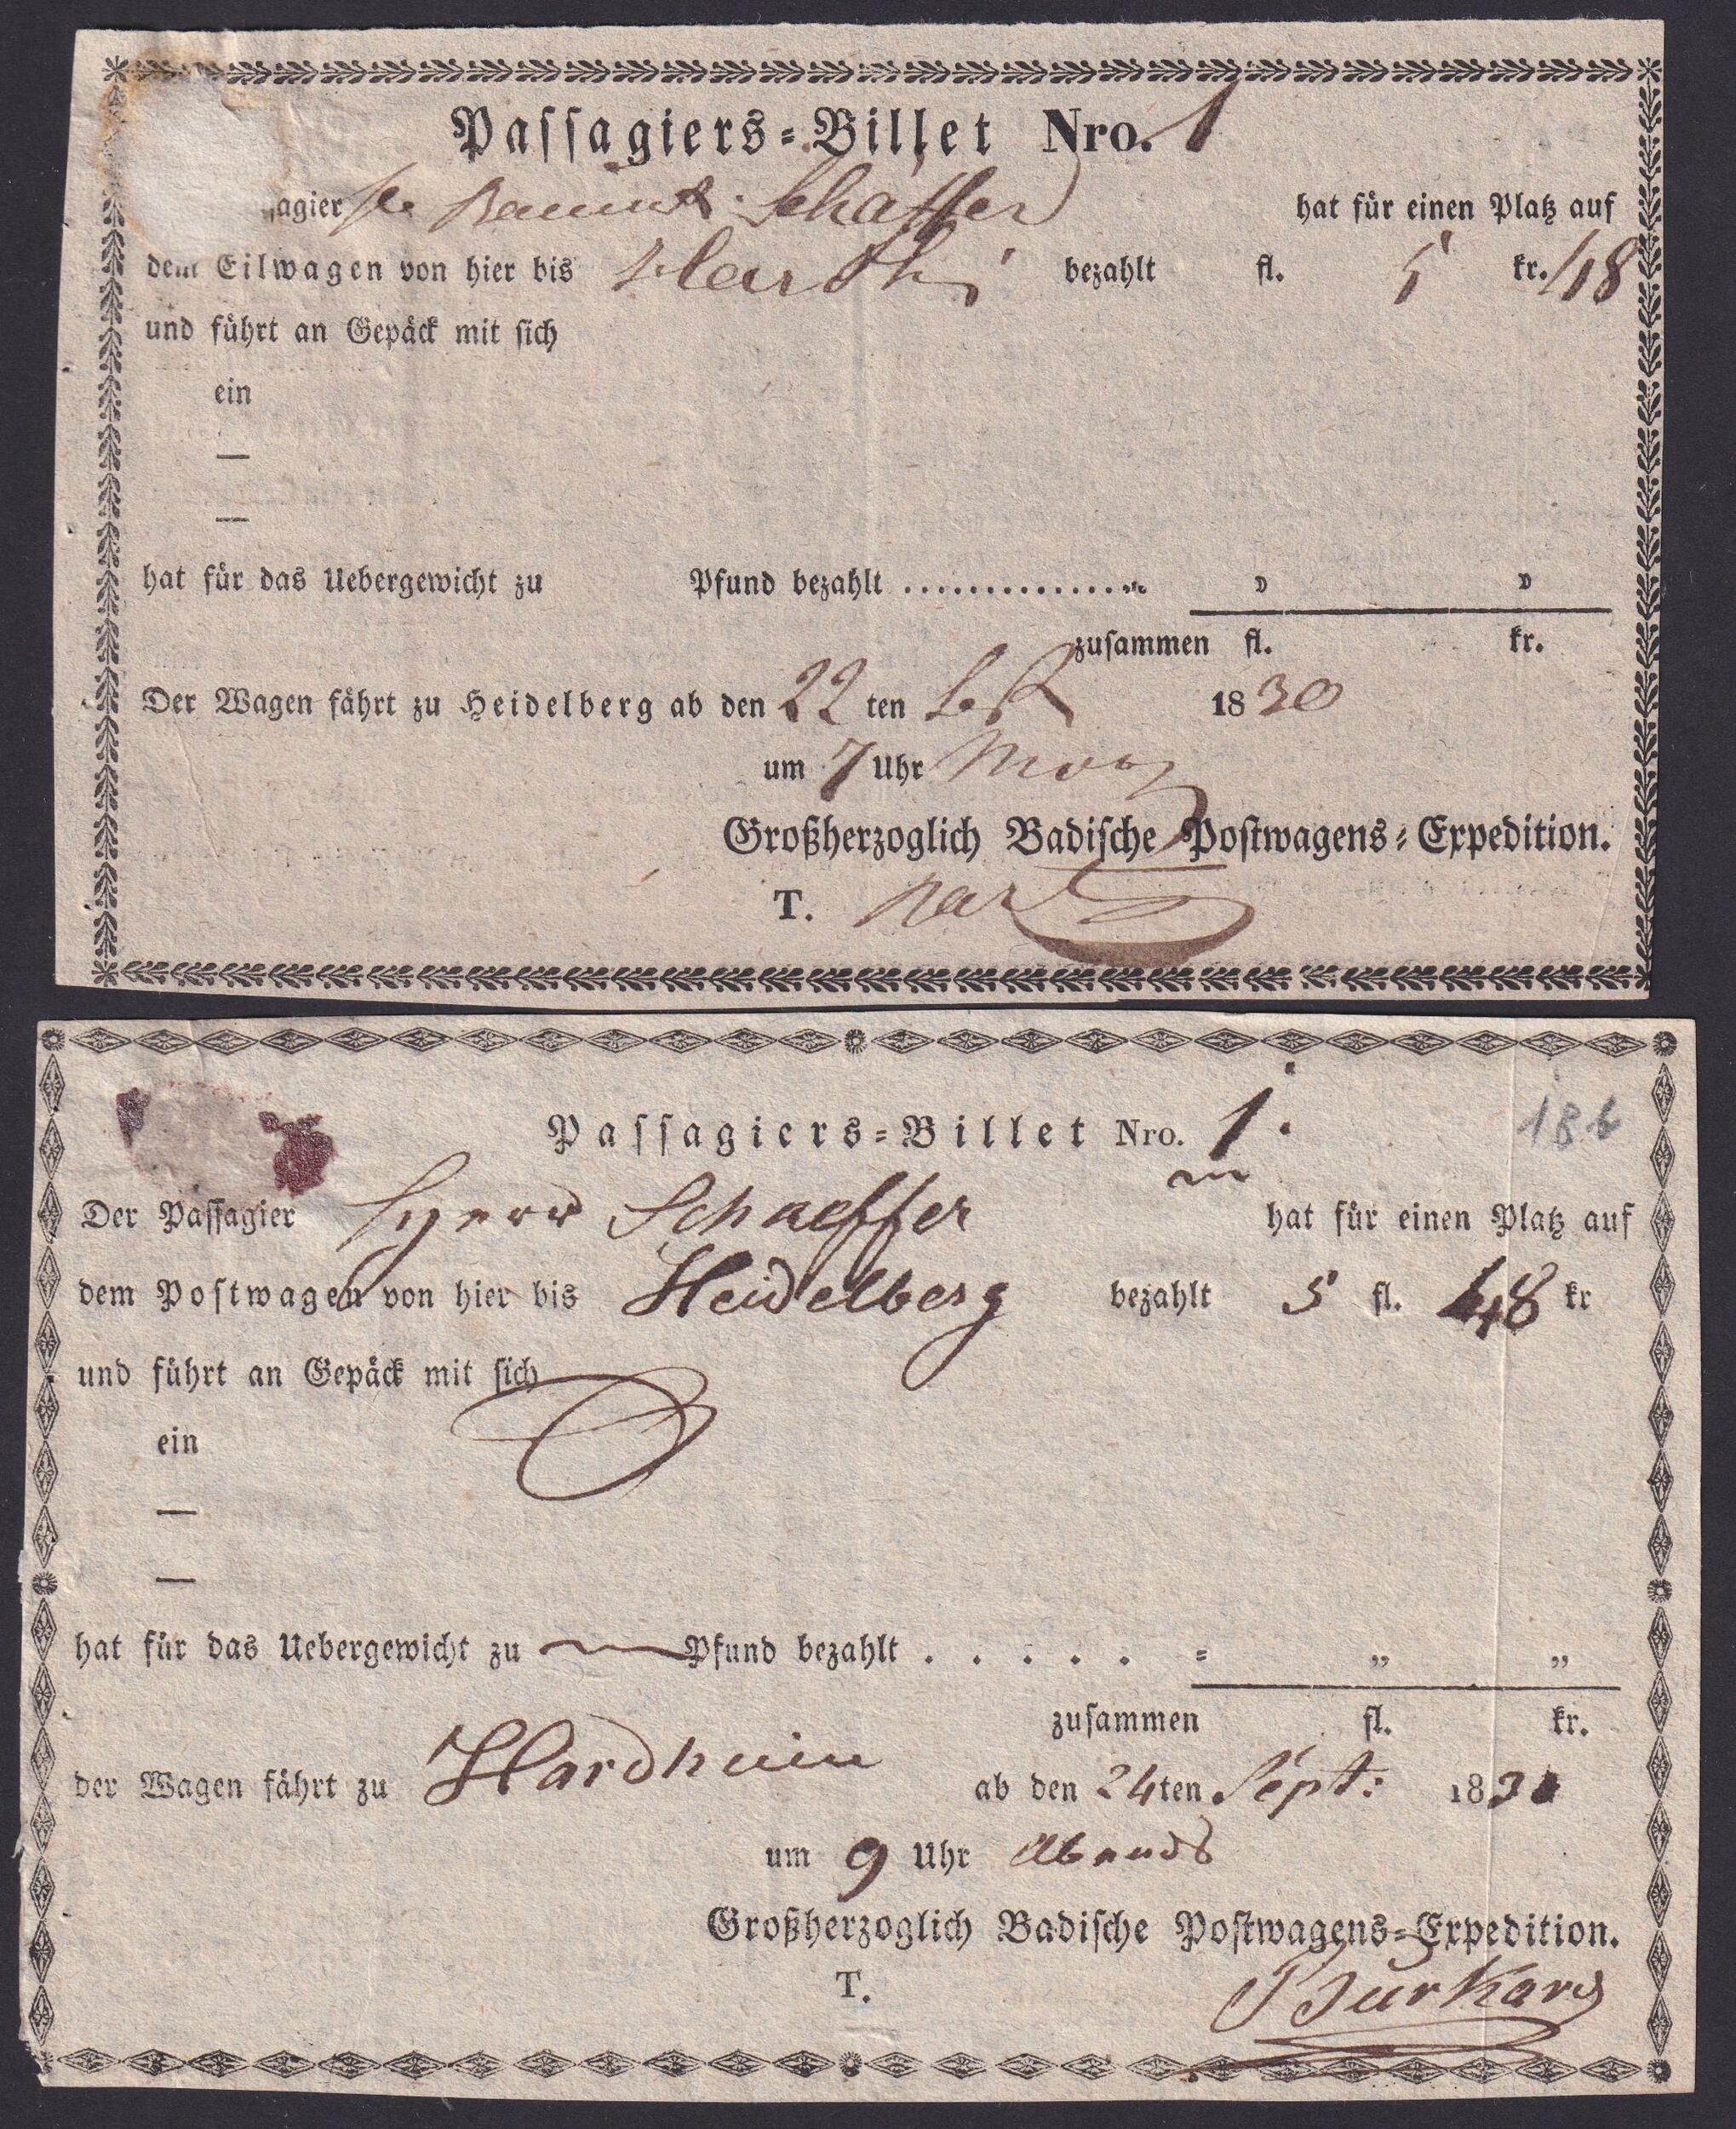 Passagiers-Billet Nro. 1
agier Schäffer hat für einen Platz auf
dem Eilwagen von hier bis Hardh. bezahlt fl. 5 kr. 48
und führt an Gepäck mit sich
ein
—
—
hat für das Uebergewicht zu Pfund bezahlt ...............„ " "
zusammen fl. kr.
Der Wagen fährt zu Heidelberg ab den 22 ten 1830
um 7 Uhr Morg
Großherzoglich Badische Postwagens-Expedition.
T.
Passagiers-Billet Nro. 1.
186
Der Passagier Herr Schaeffer hat für einen Platz auf
dem Postwagen von hier bis Heidelberg bezahlt 5 fl. 48 kr
und führt an Gepäck mit sich
ein
—
—
hat für das Uebergewicht zu — Pfund bezahlt . . . . . = „ „
zusammen fl. kr.
der Wagen fährt zu Hardheim ab den 24ten Sept: 1830
um 9 Uhr Abends
Großherzoglich Badische Postwagens-Expedition.
T. Burkard